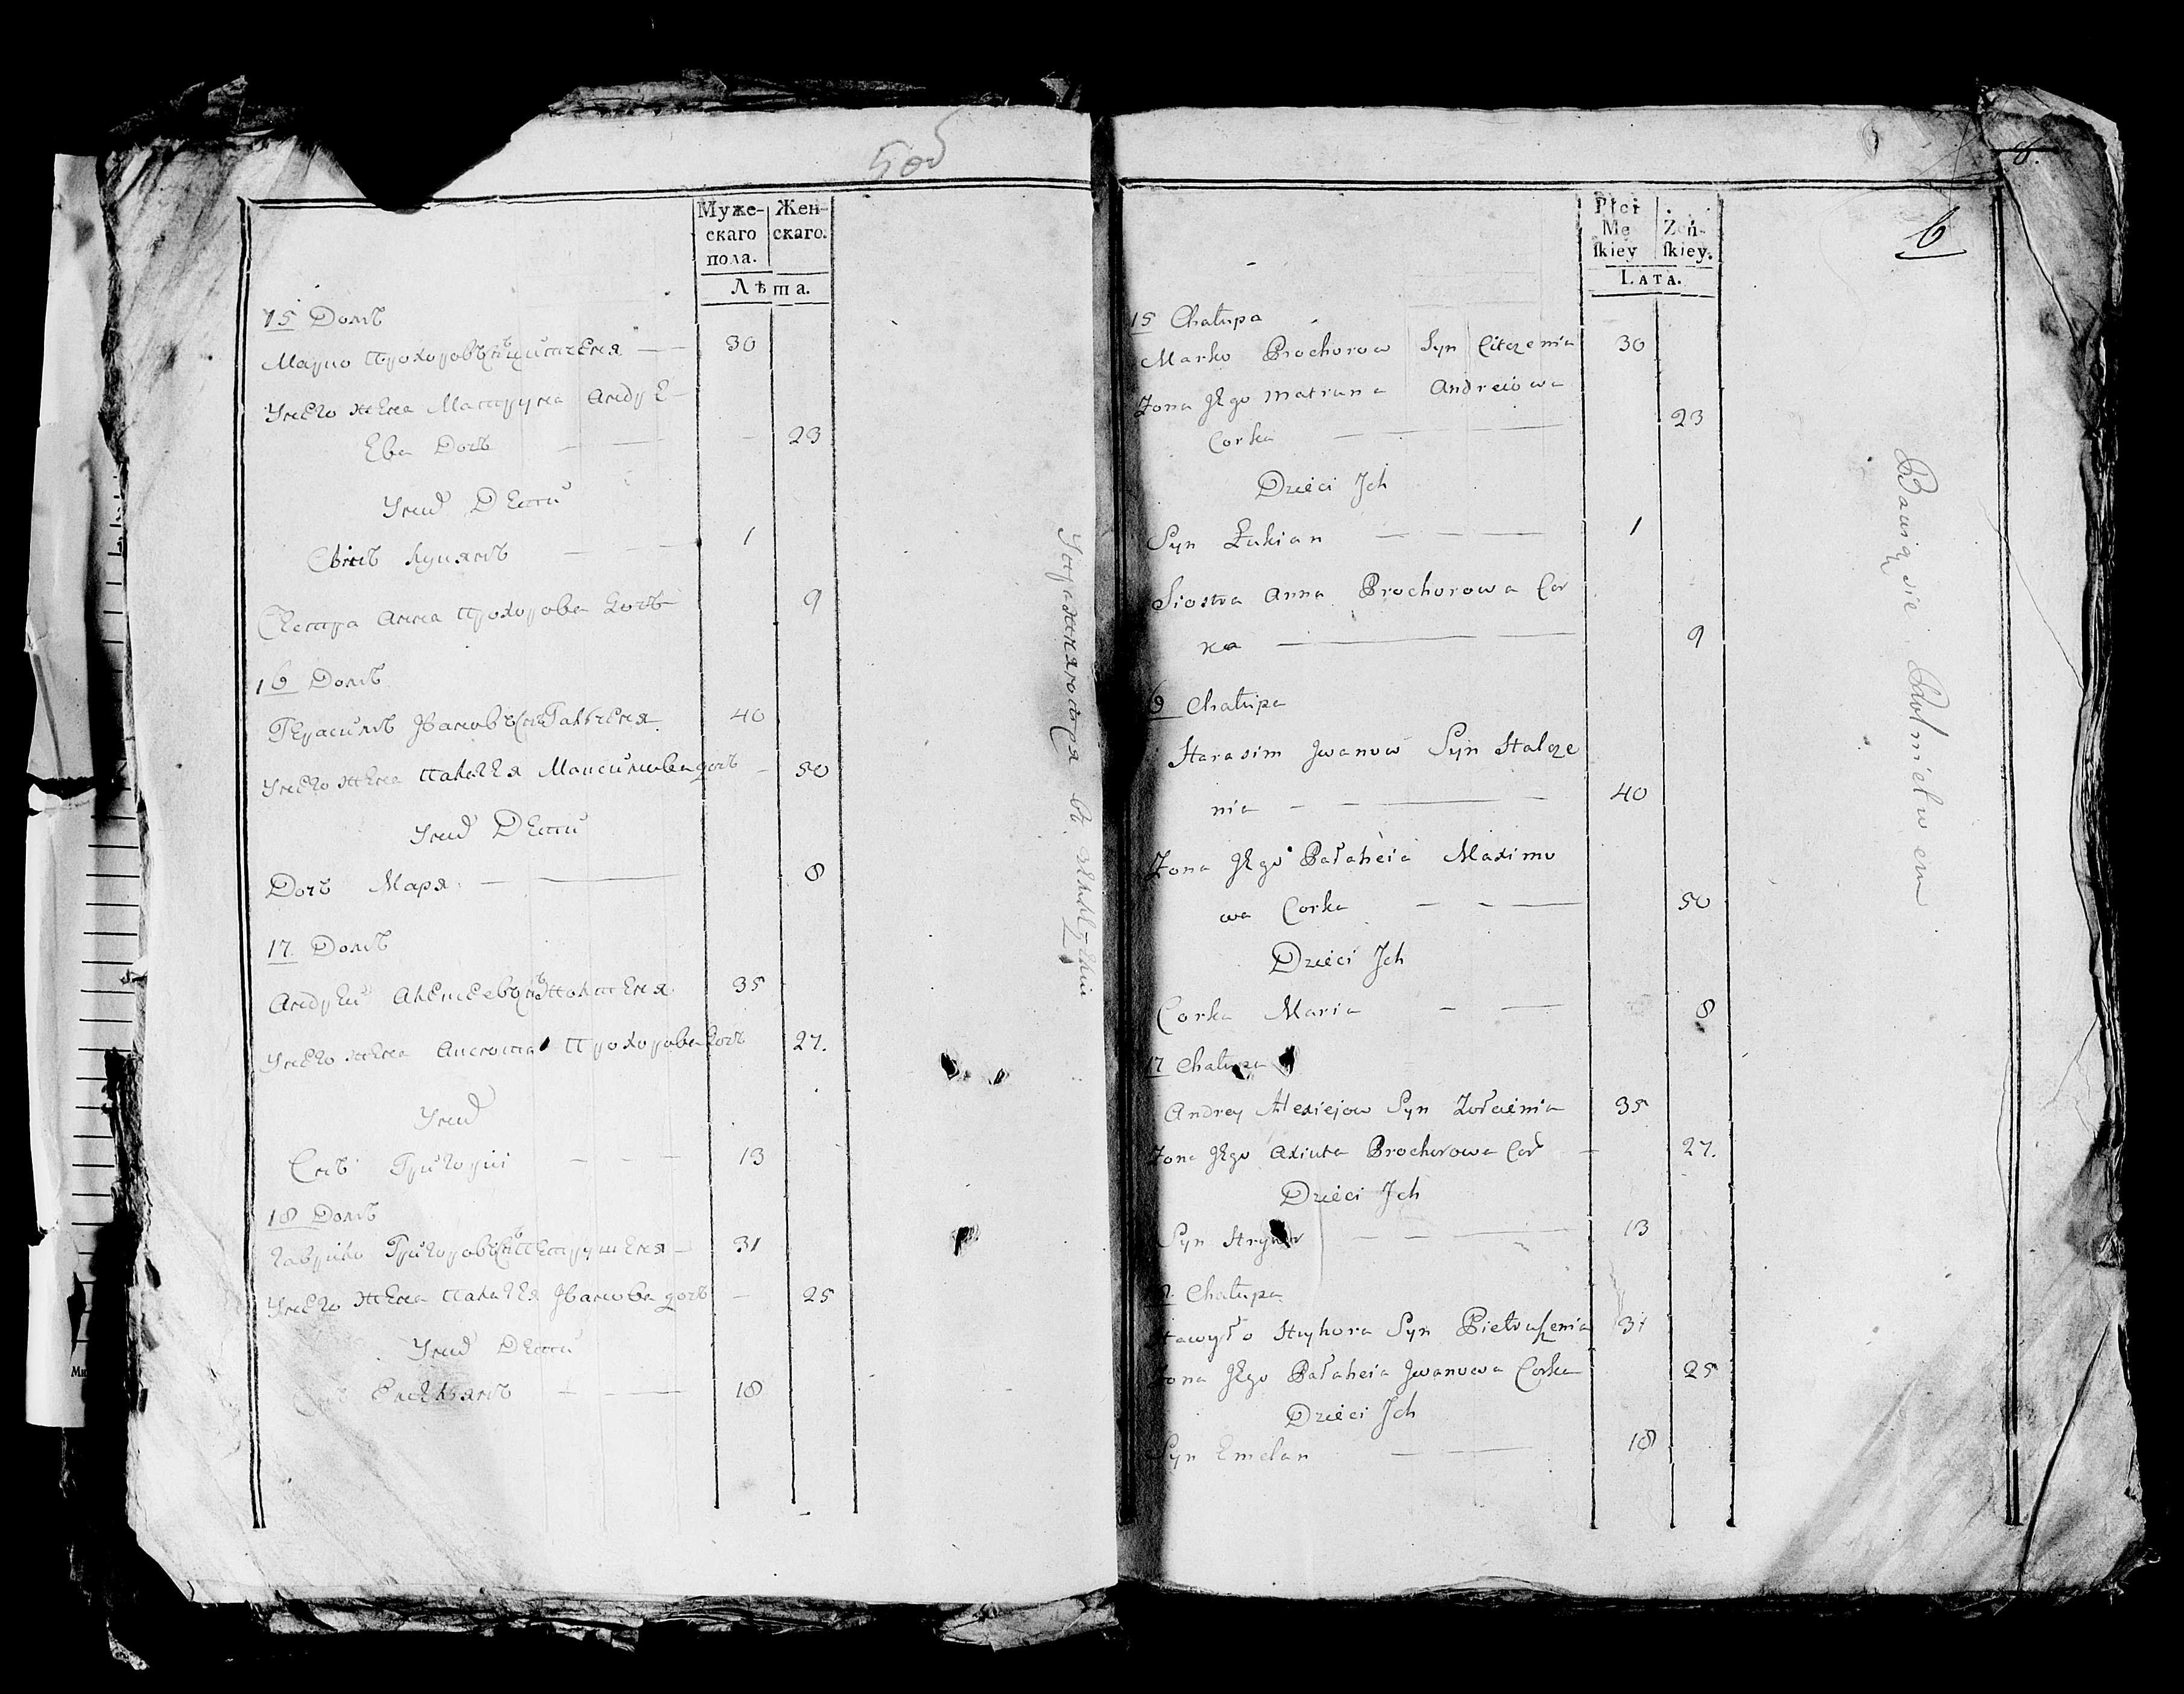 5 об
Муже-
скаго
пола.
Жен-
скаго.
Лѣта.
15 Домъ
Марко Прохоровъ снъ Цитченя — 30
Унего жена Матруна Андре-
ева Дочъ — — 23
Уних Дети
Сынъ Лукянъ — — 1
Сестра Анна Прохорова Дочъ 9
16 Домъ
Герасимъ Ивановъ снъ Гальченя 40
Унего жена Палагея Максимова дочъ — 50
Уних Дети
Дочъ Маря — — 8
17 Домъ
Андрей Алексеевъ снъ 35
Унего жена Аксюта Прохорова Дочъ 27.
Уних
Снъ Григорий — — — 13
18 Домъ
Гаврило Григоровъ снъ Петрушеня — 31
Унего жена Палагея Иванова дочъ — 25
Уних Дети
Емельянъ — — 18
Płci
Mę
ſkiey
Zeń-
ſkiey.
LATA.
6
15 Chałupa
Marko Prochorow Syn Citczenia 30
Żona Jego Matruna Andreiowa
Corka — — — 23
Dzieci Ich
Syn Łukian — — — 1
Siostra Anna Prochorowa Cor
ka — — 9
6 Chałupa
Harasim Iwanow Syn Halcze
nia — — — — 40
Żona Jego Pałaheia Maximo
wa Corka — — — 50
Dzieci Ich
Corka Maria — — 8
17 Chałupa
Andrey Alexiejow Syn Żołcienia 35
Żona Jego Axiuta Prochorowa Cor — 27.
Dzieci Ich
Syn — — — 13
Chałupa
Hawryło Hryhora Syn Pietruszenia 31
Żona Jego Pałaheia Iwanowa Corka 25
Dzieci Ich
Syn Emelan — — 18
Bawią sie Rolnictwem